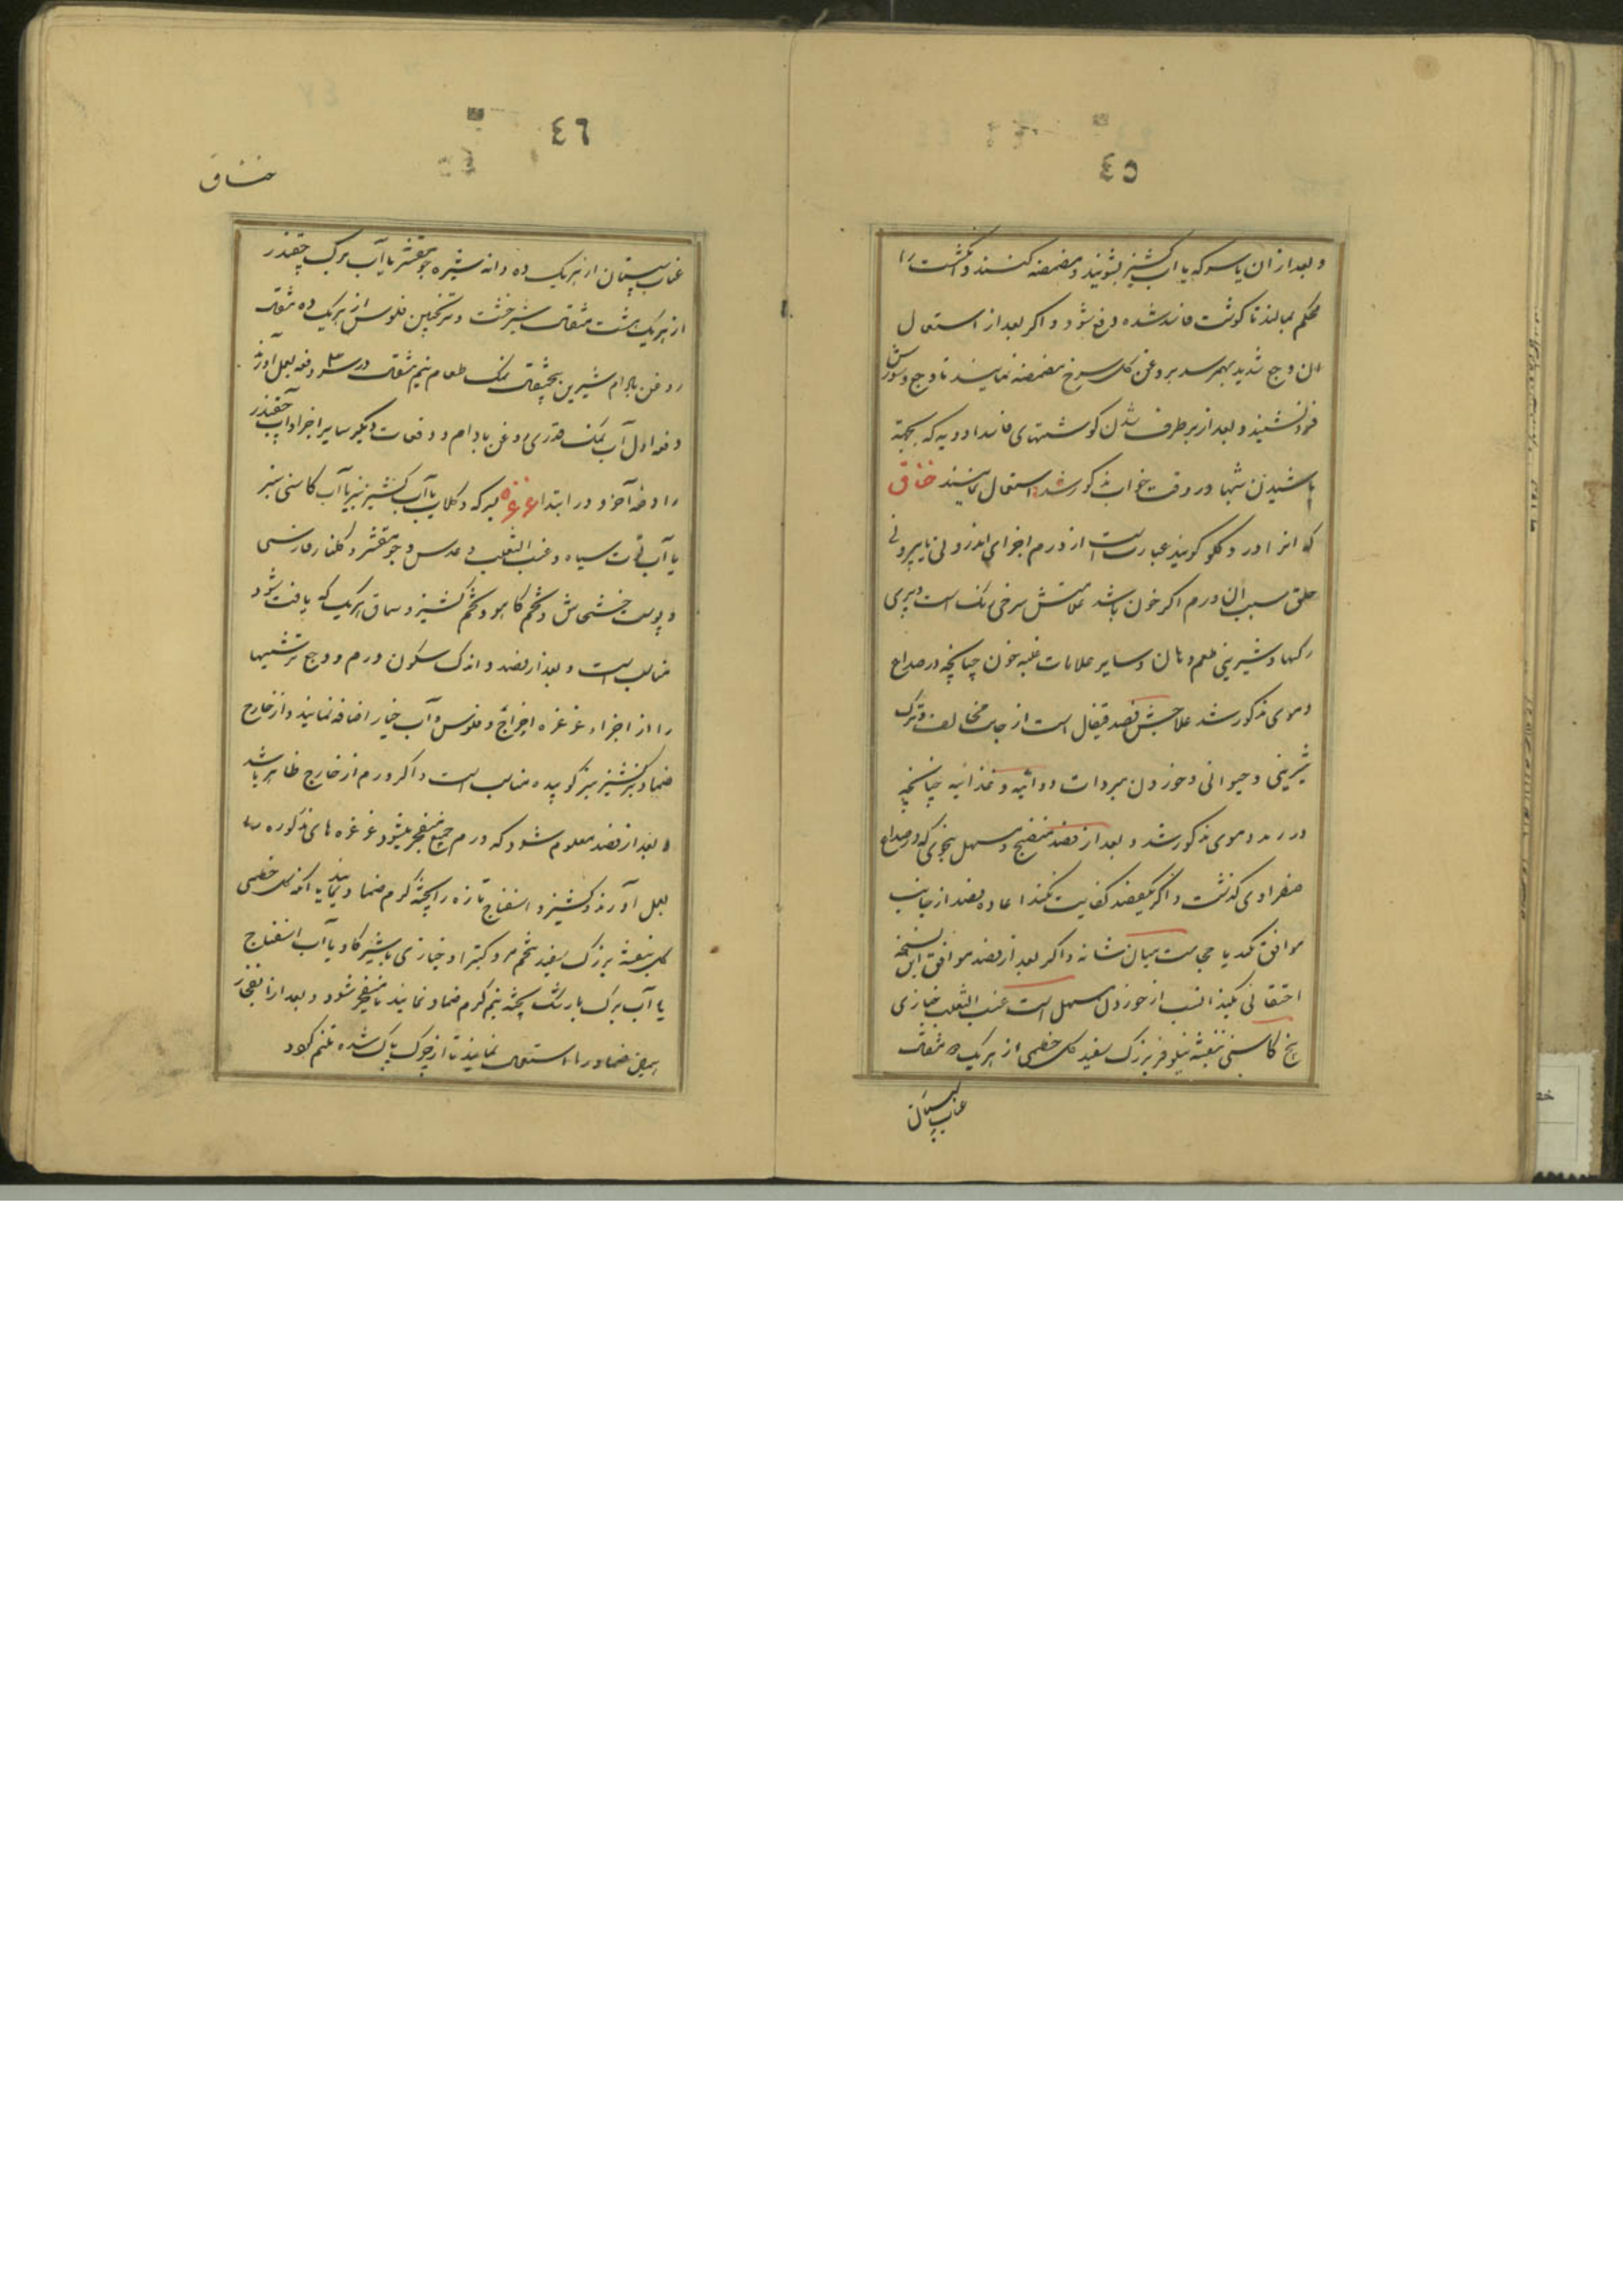 ٤٥
و بعد از آن با سرکه یا آب کشنیز بشویند و مضمضه کنند و انکشت را
محکم بمالند تا کوشت فاسد شده دفع شود و اکر بعد از استعمال
ان وجع شدید بهمرسد بروغن کل سرخ مضمضه نمایند تا وجع و سوزش
فرونشیند و بعد از برطرف شدن کوشتهای فاسد ادویه که بجهة
پاشیدن شبها در وقت خواب مذکور شد استعمال نمایند خناق
که انرا درد کلو کویند عبارتست از ورم اجزای اندرونی یا بیرونی
حلق سبب ان ورم اکر خون باشد علامتش سرخی رنک است و پری
رکها و شیرینی طعم دهان و سایر علامات غلبه خون چنانچه در صداع
دموی مذکور شد علاجش فصد قیفال است از جانب مخالف و ترک
شیرینی و حیوانی و خوردن مبردات دوائیه و غذائیه چنانچه
در رمد دموی مذکور شد و بعد از فصد منضج و مسهل بنحوی که در صداع
صفراوی کذشت و اکر یکفصد کفایت نکند اعاده فصد از جانب
موافق کند یا حجامت میان شانه و اکر بعد از فصد موافق این نسخه
احتقانی کنید انسب از خوردن مسهل است عنب الثعلب خبازی
بیخ کاسنی بنفشه نیلوفر بزرک سفید کل خطمی از هر یک ۵ مثقال
عناب سپستان
٤٦
خناق
عناب سپستان از هر یک ده دانه شیره جو مقشر با آب برک چقندر
از هر یک هشت مثقال شیرخشت و ترنجبین فلوس از هر یک ده مثقال
روغن بادام شیرین پنجمثقال نمک طعام نیم مثقال در سه دفعه بعمل آورند
دفعه اول آب نمک قدری روغن بادام و دفعات دیکر سایر اجزا و آب چقندر
را دفعه آخر و در ابتدا غرغره بسرکه و کلاب یا آب کشنیز سبز یا آب کاسنی سبز
یا آب توت سیاه و عنب الثعلب و عدس و جو مقشر و کلنار فارسی
و پوست خشخاش و تخم کاهو و تخم کشنیز و سماق هر یک که یافت شود
مناسب است و بعد از فصد و اندک سکون ورم و وجع ترشیها
را از اجزاء غرغره اخراج و فلوس و آب خیار اضافه نمایند و از خارج
ضماد کشنیز سبز کوبیده مناسب است و اکر ورم از خارج ظاهر باشد
و بعد از فصد معلوم شود که ورم جمع منفجر میشود غرغره های مذکوره
بعمل آورند و کشنیز و اسفناج تازه را پخته کرم ضماد نمایند یا انکه کل خطمی
کل بنفشه بزرک سفید تخم مرو کتیرا و خبازی با شیر کاو یا آب اسفناج
یا آب برک بارتنک پخته نیم کرم ضماد نمایند تا منفجر شود و بعد از انفجار
ضماد را استعمال نمایند تا از چرک پاک شده